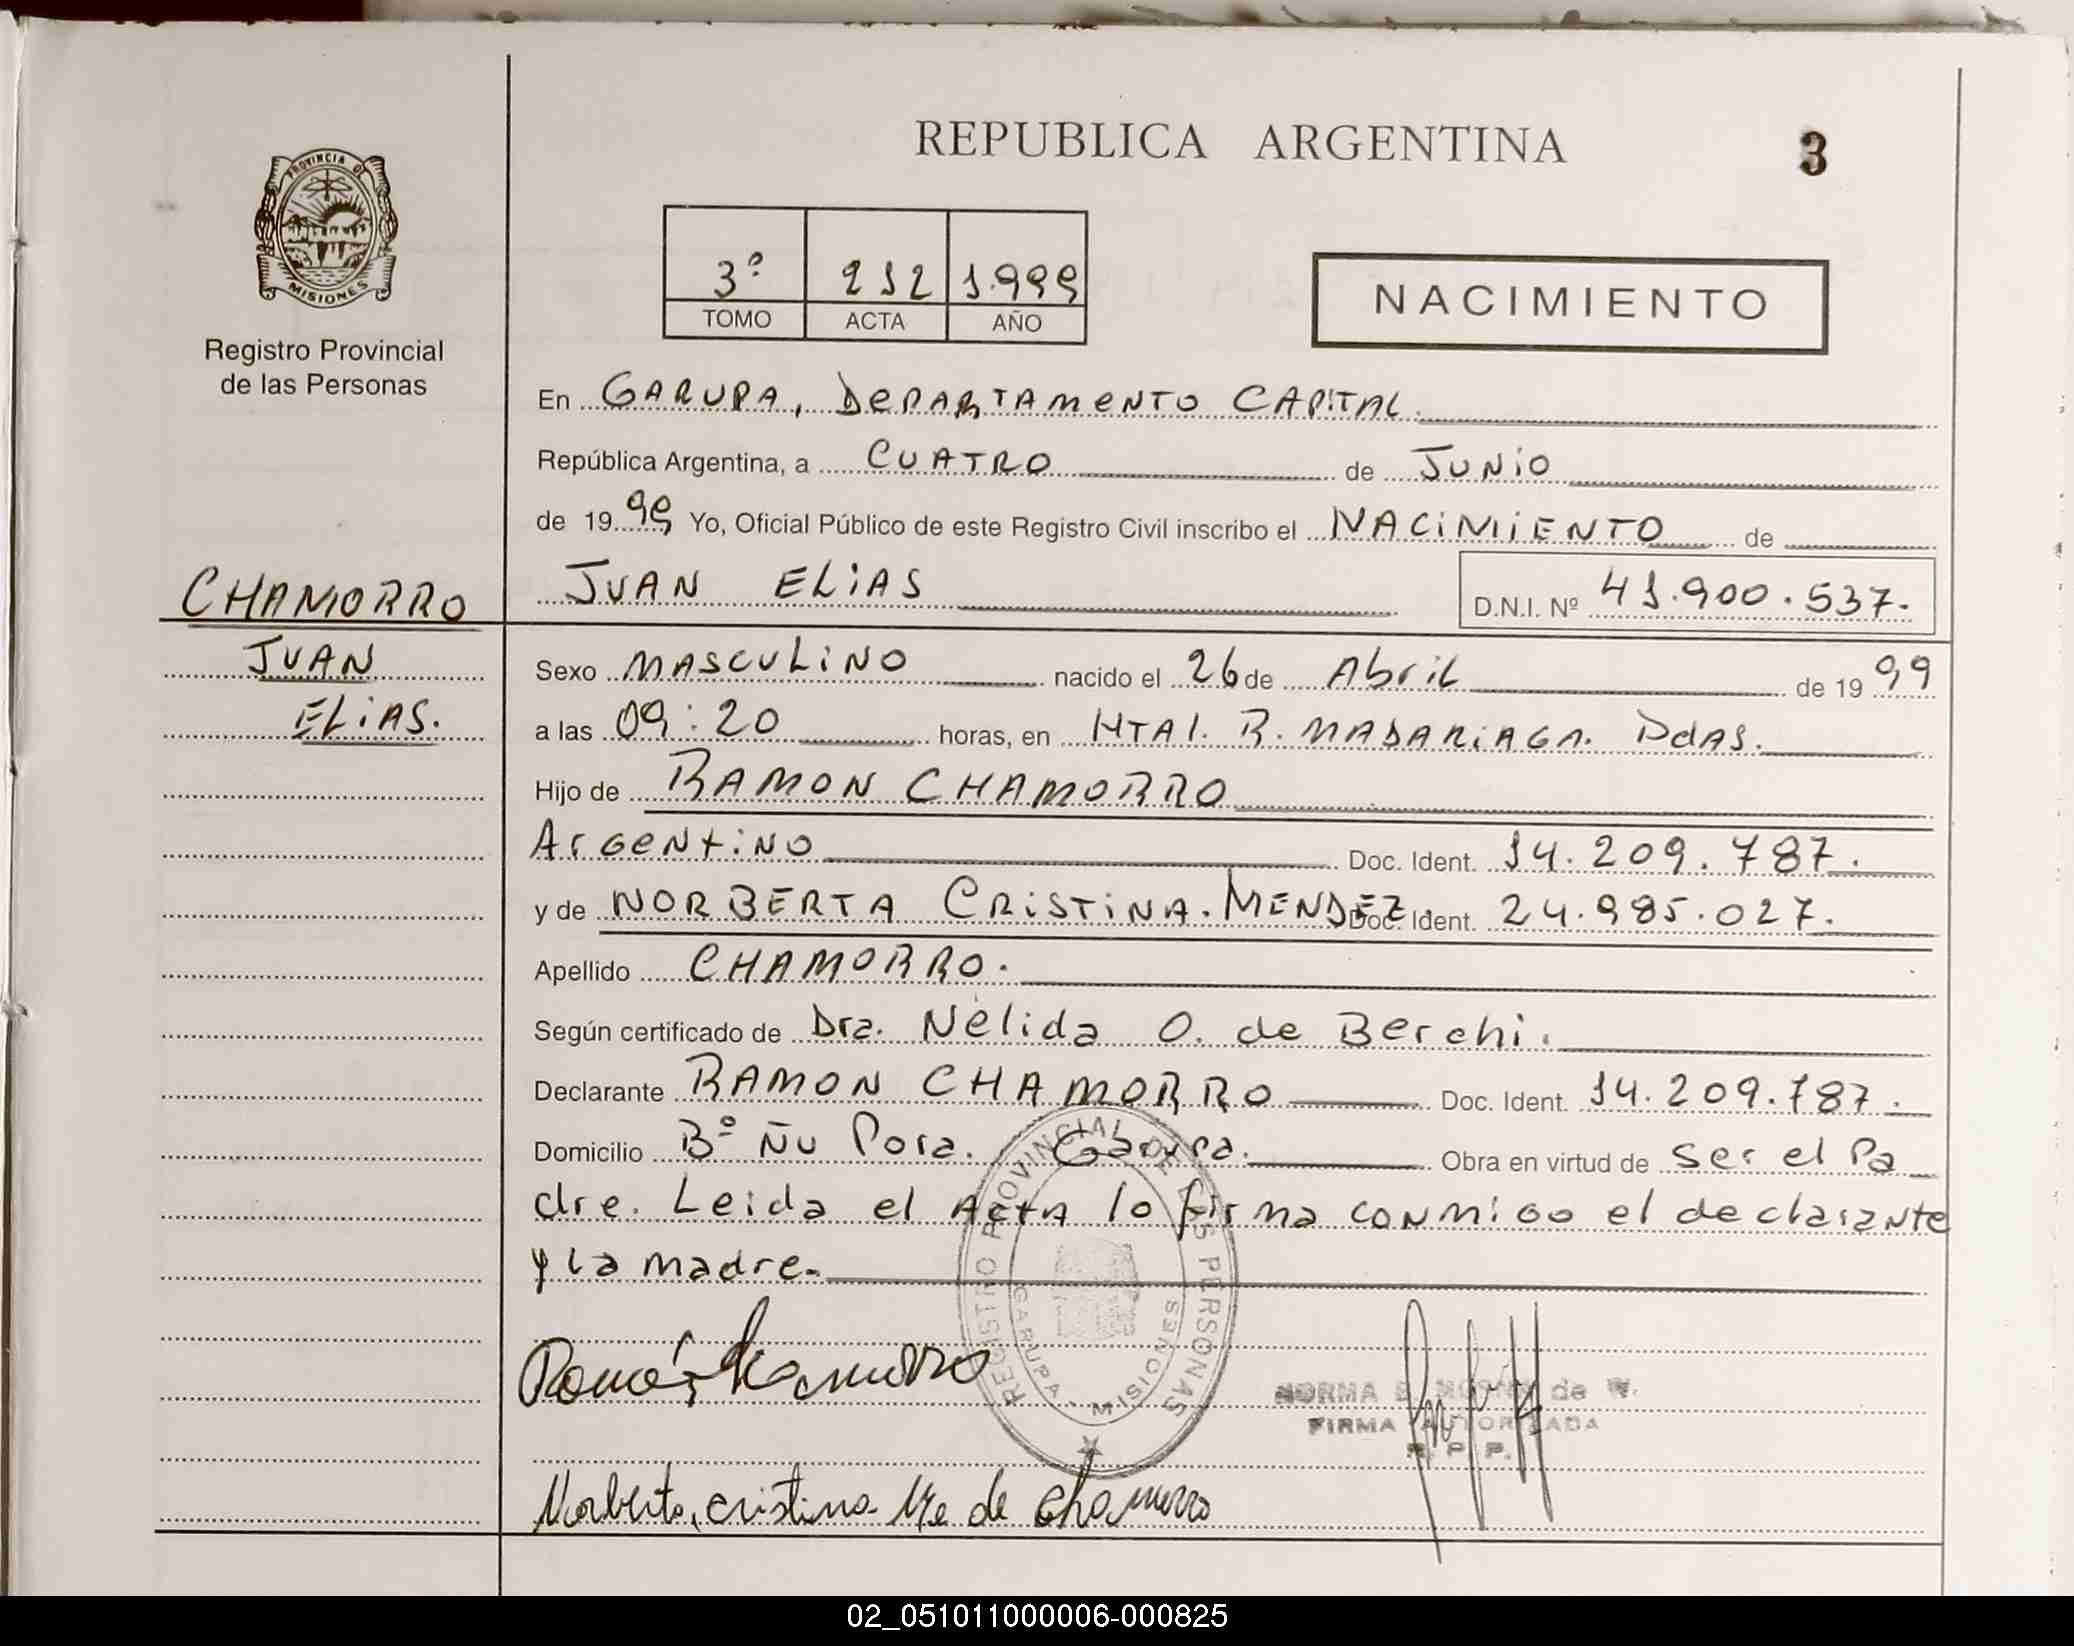 REPUBLICA ARGENTINA
3
PROVINCIA DE
MISIONES
Registro Provincial
de las Personas
3º 212 1.999
TOMO ACTA AÑO
NACIMIENTO
En GARUPA, DEPARTAMENTO CAPITAL.
República Argentina, a CUATRO de JUNIO
de 1999 Yo, Oficial Público de este Registro Civil inscribo el NACIMIENTO de
CHAMORRO
JUAN
ELIAS.
JUAN ELIAS D.N.I. Nº 41.900.537.
Sexo MASCULINO nacido el 26 de Abril de 1999
a las 09:20 horas, en HTAL. R. MADARIAGA. PdAS.
Hijo de RAMON CHAMORRO
ArGeNtiNO Doc. Ident. 14.209.787.
y de NORBERTA CRISTINA. MENDEZ. Doc. Ident. 24.985.027.
Apellido CHAMORRO.
Según certificado de Dra. Nélida O. de Berchi.
Declarante RAMON CHAMORRO Doc. Ident. 14.209.787.
Domicilio Bº Ñu Pora. Garupa. Obra en virtud de ser el Pa
dre. Leida el ActA lo firma conmigo el declarante
y la madre.
REGISTRO PROVINCIAL DE LAS PERSONAS
GARUPA - MISIONES
Ramón Chamorro
NORMA de W.
FIRMA AUTORIZADA
R. P. P.
Norberta, cristina Me de Chamorro
02_051011000006-000825